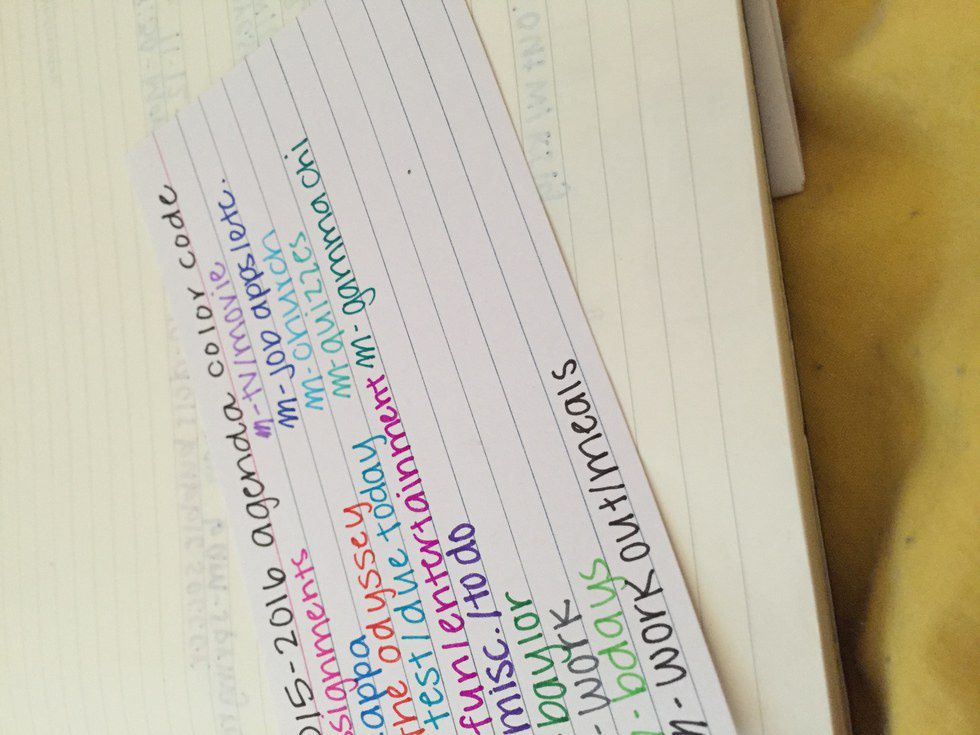 015-2016 agenda color code
ssignments m-tv/movie
appa m-job apps/etc.
the odyssey m-church
test/due today m-quizzes
fun/entertainment m-gamma chi
misc./to do
baylor
- work
- bdays
m - work out/meals